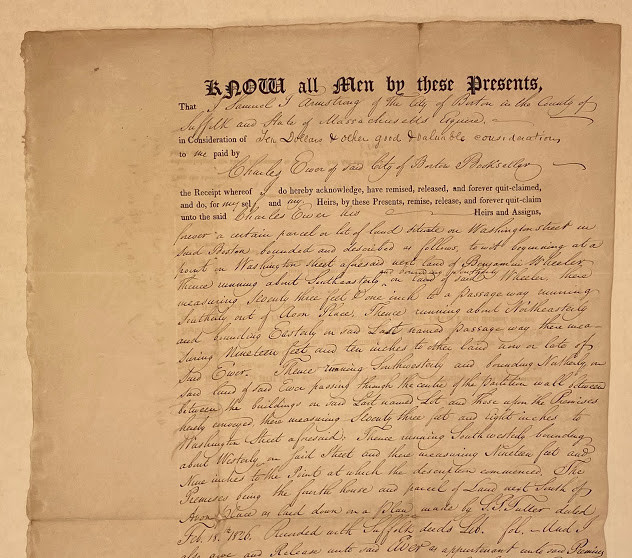 KNOW all Men by these Presents,
That I Samuel T Armstrong of the City of Boston in the County of
Suffolk and State of Massachusetts Esquire
in Consideration of Ten Dollars & other good & valuable considerations
to me paid by
Charles Ewer of said City of Boston Bookseller
the Receipt whereof I do hereby acknowledge, have remised, released, and forever quit-claimed,
and do, for my sel f and my Heirs, by these Presents, remise, release, and forever quit-claim
unto the said Charles Ewer his Heirs and Assigns,
forever a certain parcel or lot of land situate on Washington street in
said Boston bounded and described as follows, to wit beginning at a
point in Washington street aforesaid next land of Benjamin Wheeler,
Thence running about Southeasterly and bounding on land of said Wheeler there
measuring Seventy three feet & one inch to a passage way running
Southerly out of Avon Place, Thence running about Northeasterly
and bounding Easterly on said Last named passage way there mea-
suring Nineteen feet and ten inches to other land now or late of
said Ewer. Thence running Southwesterly and bounding Northerly on
said land of said Ewer passing through the centre of the Partition wall between
between the buildings on said Last named Lot and those upon the Premises
hereby conveyed there measuring Seventy three feet and eight inches to
Washington Street aforesaid, Thence running Southwesterly bounding
about Westerly on said Street and there measuring Nineteen feet and
Nine inches to the Point at which the description commenced. The
Premises being the fourth house and parcel of Land next South of
Avon Place as laid down on a Plan made by S. P. Fuller dated
Feb. 18th 1826. Recorded with Suffolk deeds Lib. fol. And I
also give and Release unto said Ewer as appurtenant unto said Premises